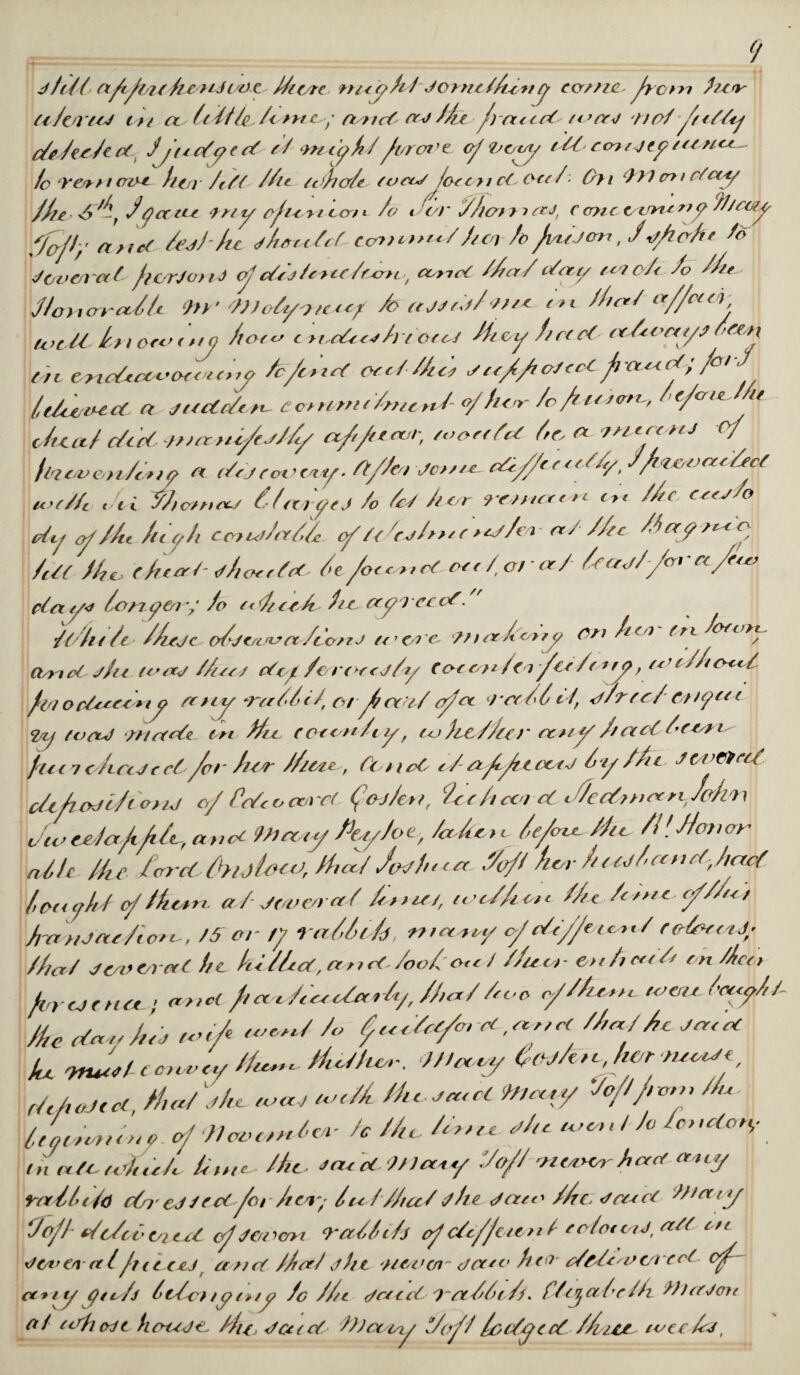 9
still apprehensive there might something come from her
uterus in a little time; and as the fraud was not fully
detected, I judged it might prove of very ill consequence
to remove her till the whole was found out. On Monday
the 5th, I gave my opinion to Sir Thomas, concerning Mary
Toft; and lest he should commit her to prison, I spoke to
several persons of distinction, and that day wrote to the
Honorable Mr Molyneux to assist me in that affair,
well knowing how industrious they had always been
in endeavouring to find out this supposed fraud; for I
believed a sudden commitment of her to prison, before the
cheat did manifestly appear, would be a means of
preventing a discovery. After some difficulty, I prevailed
with Sir Thomas Clarges to let her remain in the custo
dy of the high constable of Westminster at the Bagnio
till the cheat should be found out, or at least for a few
days longer; to which he agreed."
While these observations were making on her in town
and she was thus dexterously counterfeiting, without
producing any rabbit, or part of a rabbit, strict enqui
ry was made in the country, whether any had been
purchased for her there, and it appears by the several
depositions of Edward Costen, Richard Stedman, John
Sweetapple, and Mary Peytoe, taken before the Rt Honor
able the Lord Onslow, that Joshua Toft her husband, had
bought of them at several times, within the time of this
transaction, 15 or 17 rabbits, many of different colours;
that several he killed, and took out their entrails in their
presence; and particularly, that two of them were bought
the day his wife went to Guildford, and that he said
he must convey them thither. Mary Costen, her nurse,
deposed, that she was with the said Mary Toft from the
beginning of November to the time she went to London;
in all which time the said Mary Toft never had any
rabbits dressed for her; but that she saw the said Mary
Toft delivered of seven rabbits of different colours, all in
several pieces, and that she never saw her delivered of
any guts belonging to the said rabbits. Elizabeth Mason
at whose house the said Mary Toft lodged three weeks,